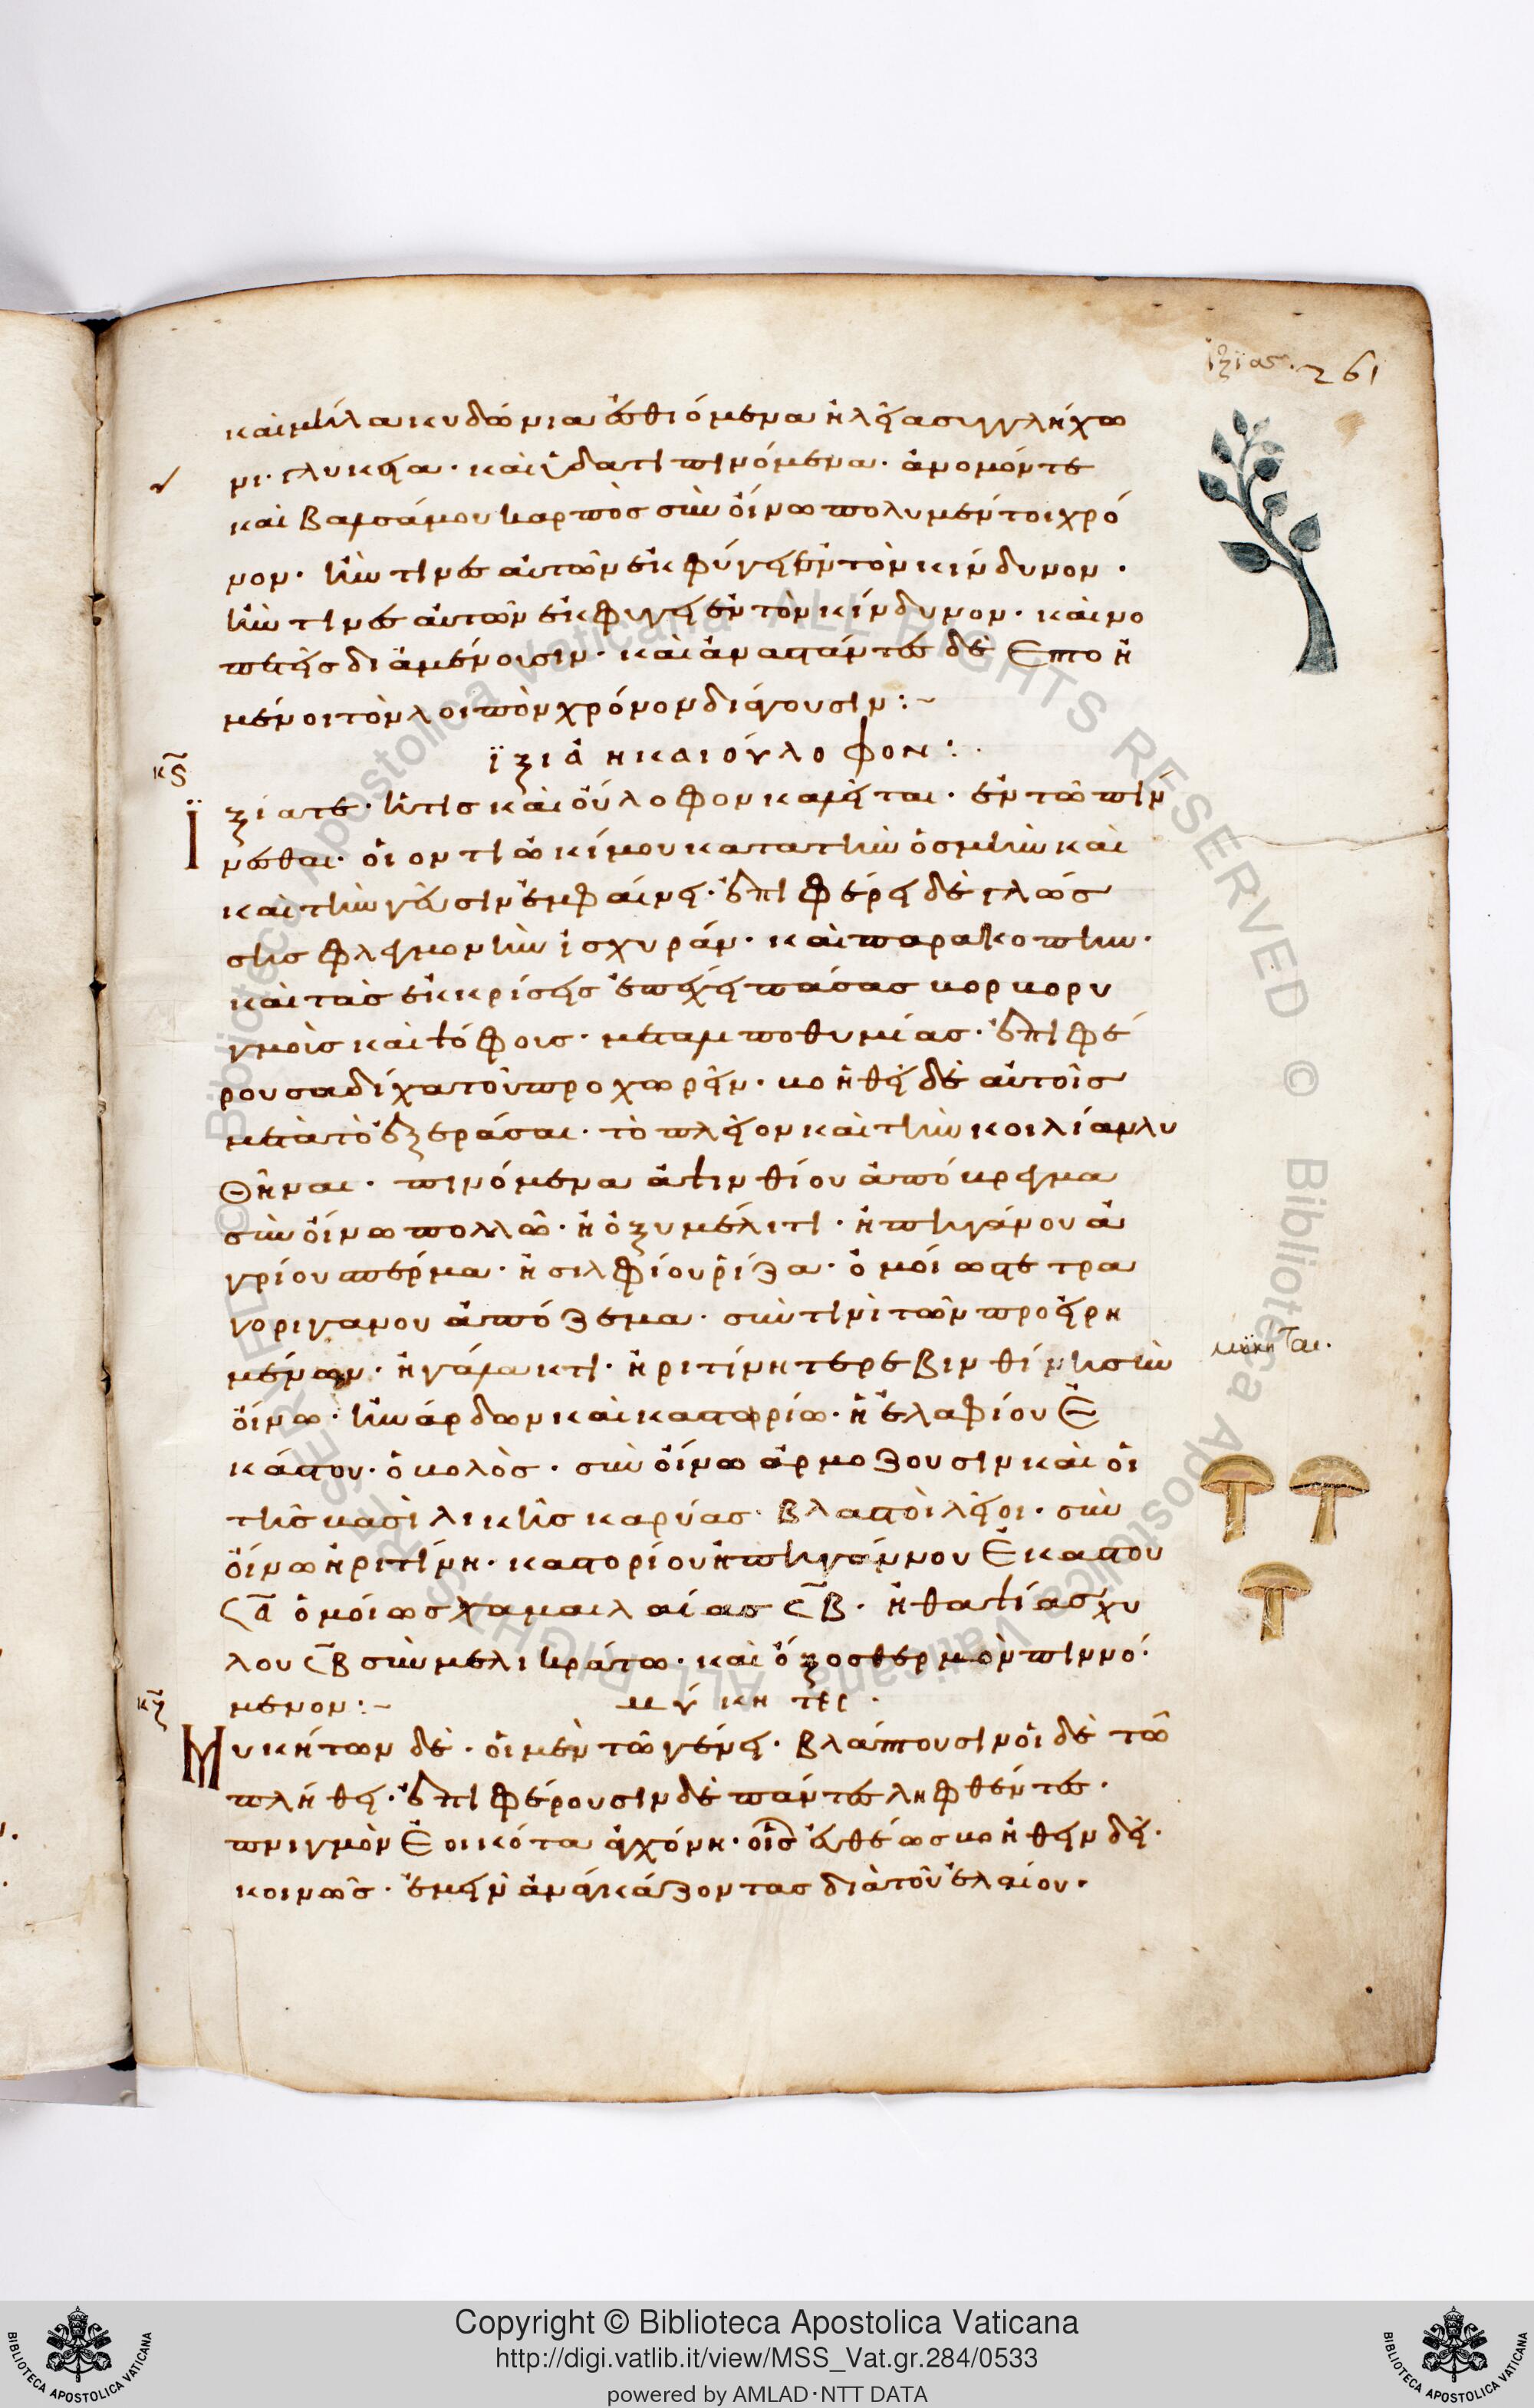 ἰξίας. 261
καὶ μῆλα κυδώνια ἐσθιόμενα ἢ λεῖα σὺν γλήχω
νι. γλυκεῖα. καὶ ὕδατι πινόμενα. ἀμομόν τε
καὶ βαλσάμου καρπὸς σὺν οἴνω πολυμέντοι χρό
νον. ἤν τινες αὐτῶν ἐκφύγειεν τὸν κίνδυνον.
ἤν τινες αὐτῶν ἐκφυγειεν τὸν κίνδυνον. καὶ νο
διάμένουσιν. καὶ
μένοι τὸν λοιπὸν χρόνον διάγουσιν:~
ϊξιὰ ἡ καὶ οὐλοφον:.
κς
Ϊξία τε. ἥτις καὶ οὔλοφον καλεῖται. ἐν τῶ πίν
νεσθαι. οἷον τι ὠκίμου κατὰ τὴν ὀσμὴν καὶ
καὶ τὴν γεῦσιν ἐμφαίνει. ἐπιφέρει δὲ γλώσ
σης φλεγμονὴν ἰσχυράν. καὶ παρακοπὴν.
καὶ τὰς ἐκκρίσεις ἐπέχει πάσας κορκορυ
γμοῖς καὶ ψόφοις. μεταλιποθυμίας. ἐπιφέ
ρουσα δίχα τοῦ προχωρεῖν. βοηθεῖ δὲ αὐτοῖς
μετὰ τὸ ἐξεράσαι. τὸ πλεῖον καὶ τὴν κοιλίαν λυ
θῆναι. πινόμενα ἀψινθίου ἀπόβρεγμα
σὺν οἴνω πολλῶ. ἢ ὀξυμέλιτι. ἢ πηγάνου ἀ
γρίου σπέρμα. ἢ σιλφίου ῥίζα. ὁμοίως τε τρα
γοριγανου ἀπόζεμα. σὺν τινὶ τῶν προειρη
μένων. ἢ γάλακτι. ἢ ριτίνη τερεβινθίνη σὺν
οἴνω. ἢ νάρδων καὶ καστορίω. ἢ ἐλαφίου ἑ
κάστου. ὀβολὸς. σὺν οἴνω ἁρμοζουσιν καὶ οἱ
τῆς βασιλικῆς καρύας βλαστοὶ λεῖοι. σὺν
οἴνω ἢ ριτίνη. καστορίου ἢ πηγάνου ἑκάστου
𐅻α ὁμοίως χαμαιλαίας 𐅻β. ἢ θαψίας χυ
λου 𐅻β σὺν μελικράτω. καὶ ὄξος θερμὸν πιννό
μενον:~
μύκητες.
κζ
Μυκήτων δὲ. οἱ μὲν τῶ γένει. βλάπτουσιν οἱ δὲ τῶ
πλήθει. ἐπιφέρουσιν δὲ πάντες ληφθέντες.
πνιγμὸν ἐοικότα ἀγχόνη. οἷς εὐθέως βοηθεῖν δεῖ.
κοινῶς. ἐμεῖν ἀναγκάζοντας διὰ τοῦ ἐλαίου.
μύκηται.
Copyright © Biblioteca Apostolica Vaticana
http://digi.vatlib.it/view/MSS_Vat.gr.284/0533
powered by AMLAD·NTT DATA
BIBLIOTECA APOSTOLICA VATICANA
BIBLIOTECA APOSTOLICA VATICANA
© Biblioteca Apostolica Vaticana ALL RIGHTS RESERVED
© Biblioteca Apostolica Vaticana ALL RIGHTS RESERVED